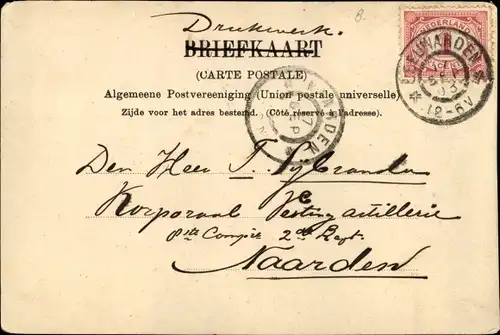 Drukwerk. 8.
BRIEFKAART
(CARTE POSTALE)
Algemeene Postvereeniging (Union postale universelle)
Zijde voor het adres bestemd. (Côté réservé à l'adresse).
NEDERLAND
12-6A
NAARDEN
Den Heer T. Sybrandu
Korporaal Vesting artillerie
Comp 2de Regt.
Naarden